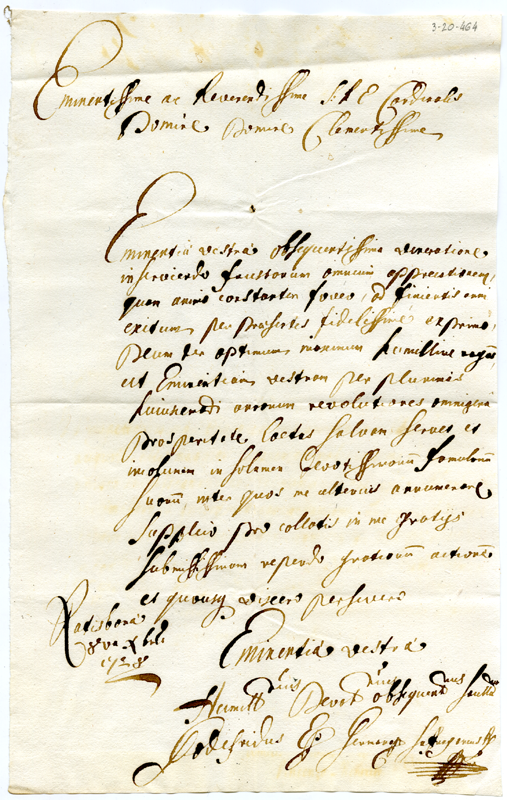 3-20-464
Eminentissime ac Reverendissime S: R: E Cardinalis
Domine Domine Clementissime
Eminentiae vestrae obsequentissima veneratione
inserviendo faustorum omnium apprecationem,
quam animo constanter foveo, ad finientis anni
exitum per praesentes fidelissime exprimo,
Deum ter optimum maximum humillime rogans,
ut Eminentiam vestram per plurimas
huiusmodi annorum revolutiones omnigena
prosperitate laetus salvam servet et
incolumem in solamen devotissimorum famulorum
suorum, inter quos me ulterius annumerare
supplico pro collatis in me gratijs
submississimam rependo gratiarum actionem
et quousq vixero persevero
Eminentiae vestrae
Ratisbonae
Xbris
Humill mus Devot mus obsequent mus
Godefridus